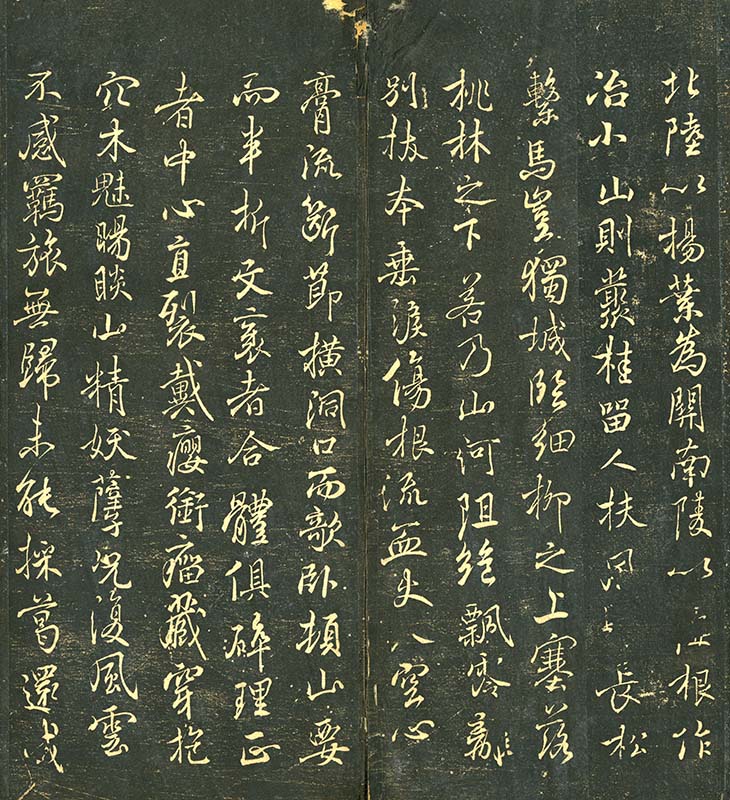 北陸以楊葉為關南陵以根作
冶小山則叢桂留人扶風長松
繫馬豈獨城臨細柳之上塞落
桃林之下若乃山河阻絕飄零離
別拔本垂淚傷根流血火入空心
膏流斷節橫洞口而欹臥頓山要
而半折文衺者合體俱碎理正
者中心直裂戴癭銜瘤藏穿抱
穴木魅睗睒山精妖孽況復風雲
不感羈旅無歸未能採葛還成